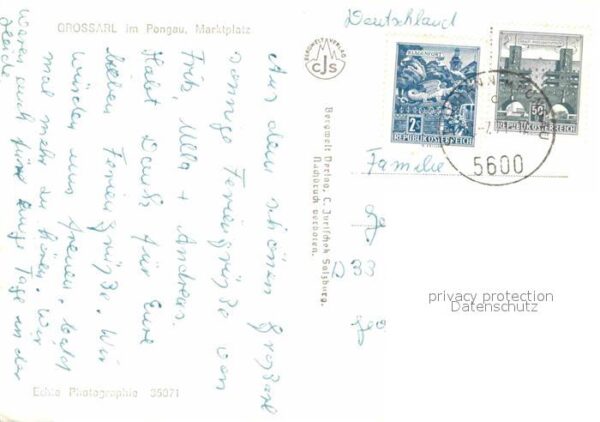 GROSSARL im Pongau, Marktplatz
Aus dem schönen Großarl
sonnige Feriengrüße von
Fritz, Ulla + Andreas.
Habt Dank für Eure
lieben Feriengrüße. Wir
würden uns freuen, bald
mal mehr zu hören. Wir
waren auch für einige Tage an der
Echte Photographie 35071
BERGWELT VERLAG
CJS
Bergwelt Verlag, C. Jurischek Salzburg.
Nachdruck verboten.
Deutschland
KLAGENFURT
2S
REPUBLIK ÖSTERREICH
50g
REPUBLIK ÖSTERREICH
5600
Familie
D 33
privacy protection
Datenschutz